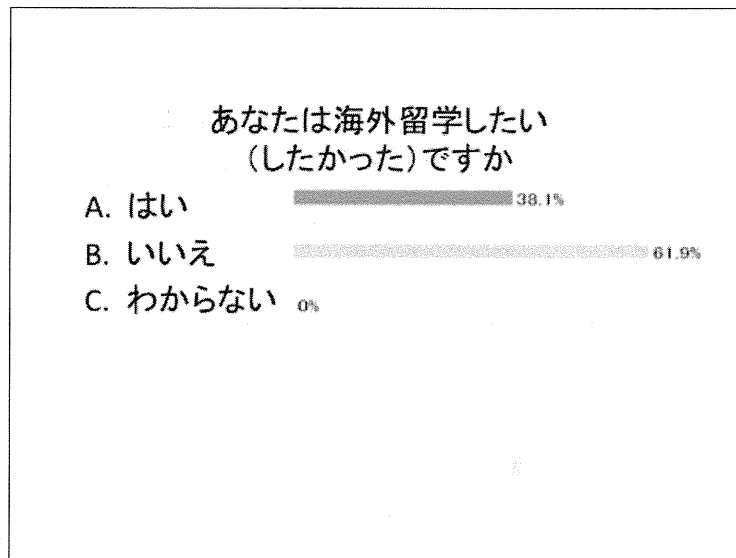 あなたは海外留学したい
(したかった)ですか
A. はい 38.1%
B. いいえ 61.9%
C. わからない 0%